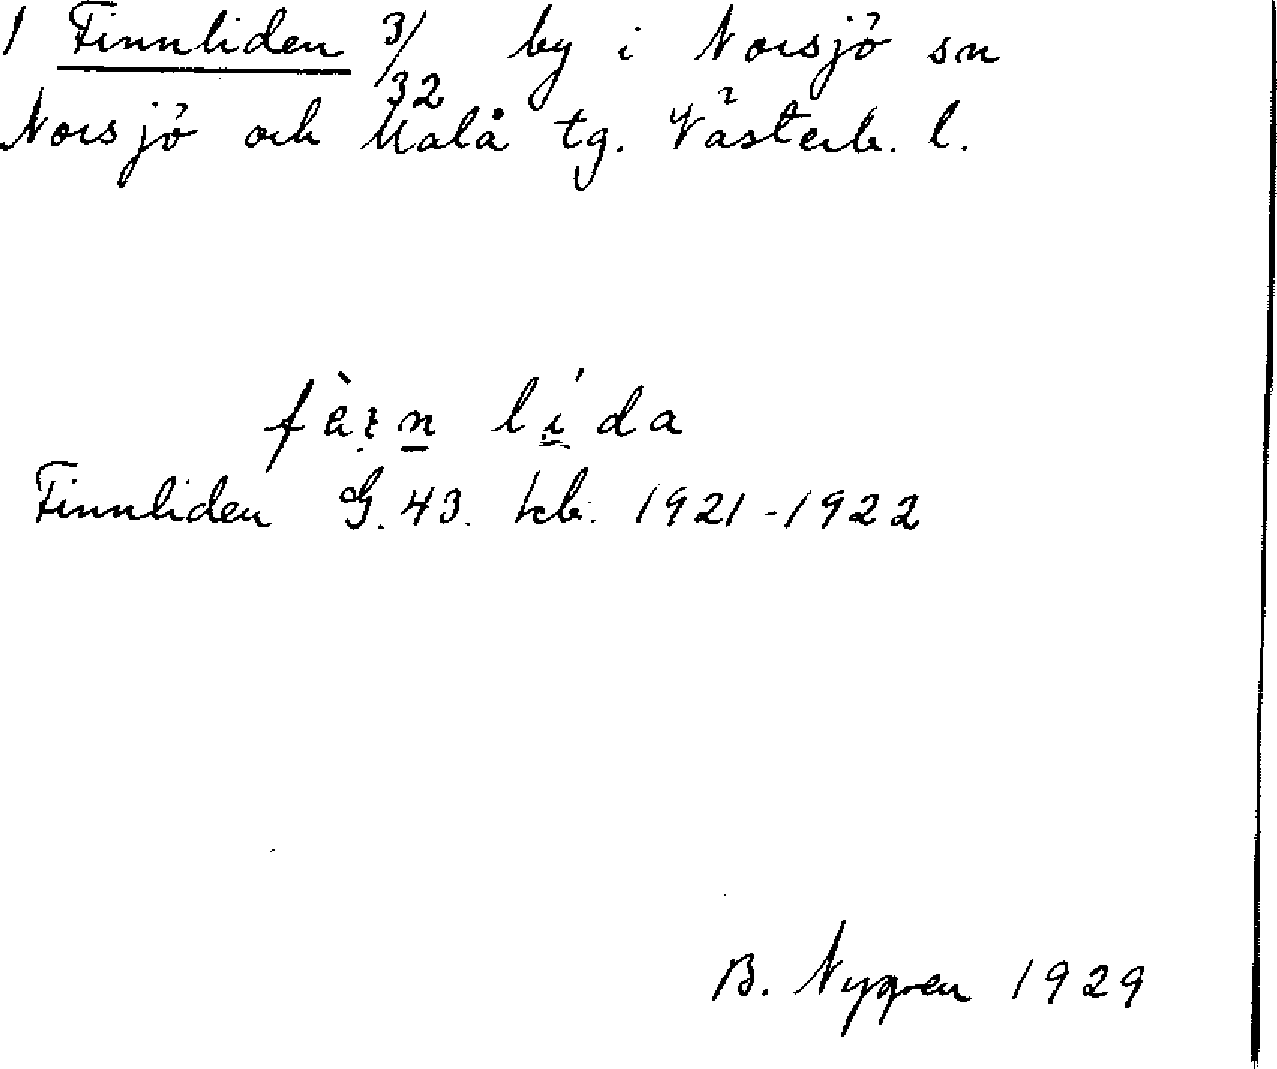 1 Finnliden 3/32 by i Norsjö sn
Norsjö och Malå tg. Västerb. l.
Finnliden G. 43. kb. 1921-1922
B. Nygren 1929